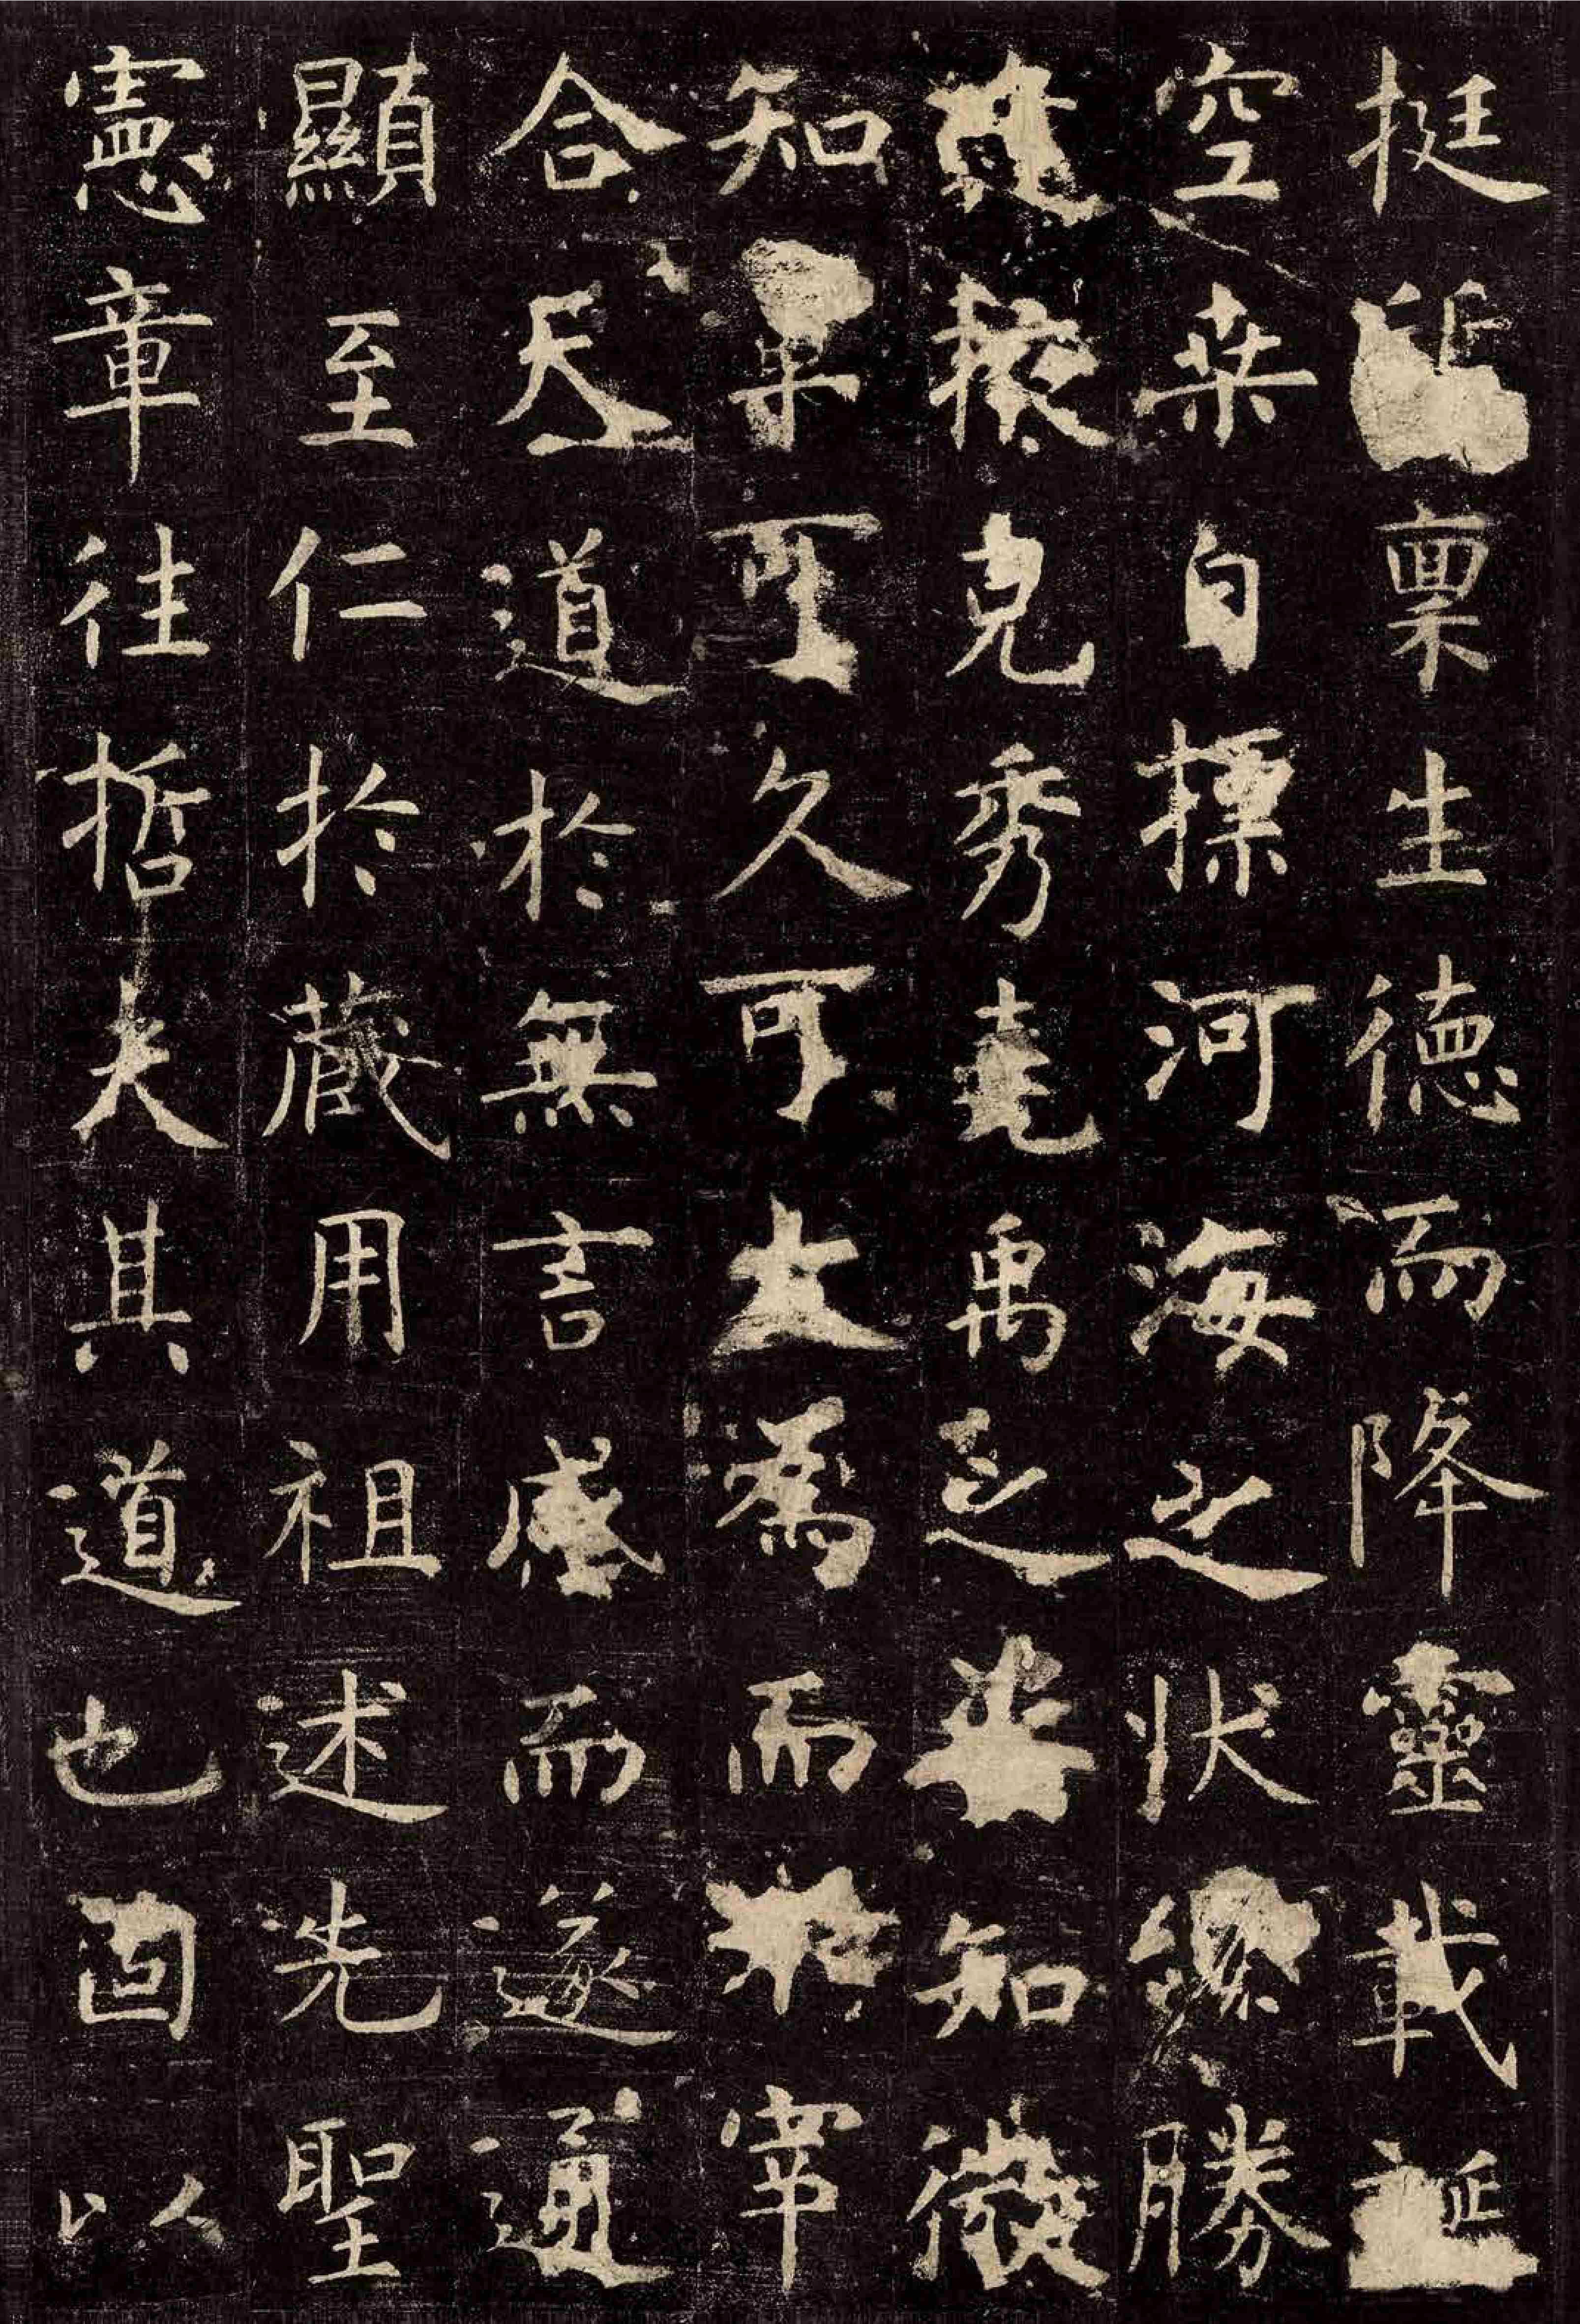 挺質稟生德而降靈載誕
空桒自摽河海之狀纔勝
逢掖克秀堯禹之姿知微
知章可久可大爲而不宰
合天道於無言感而遂通
顯至仁於藏用祖述先聖
憲章往哲夫其道也固以